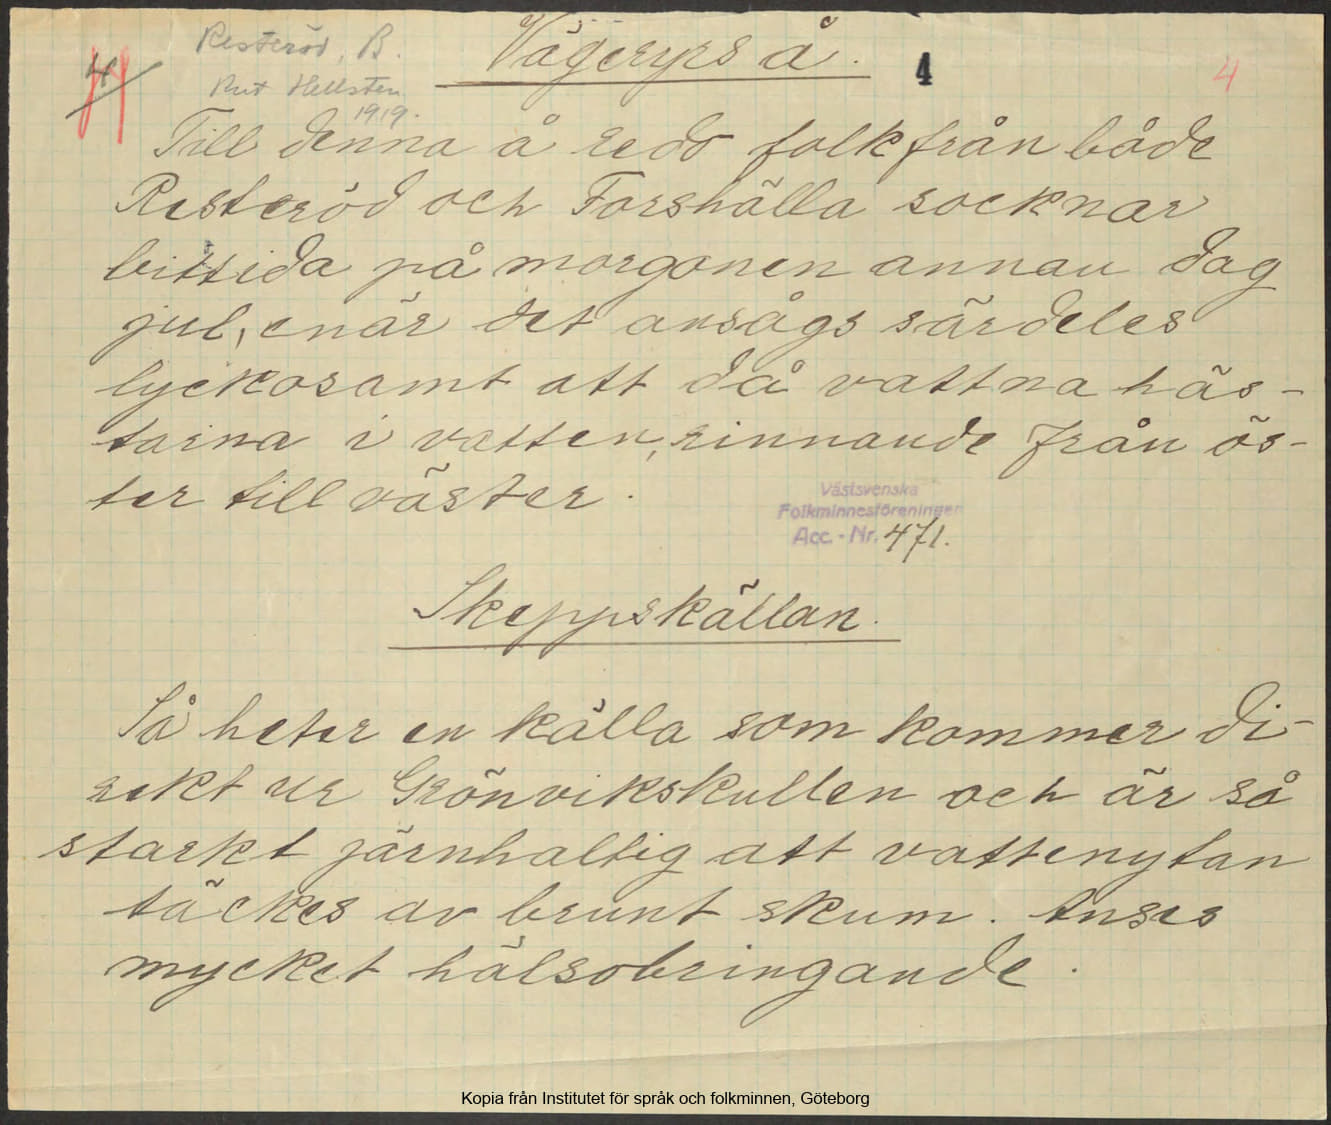 Resteröd, B.
Rut Hellsten
1919.
4
4
Vägeryrs å.
Till denna å redo folk från både
Resteröd och Forshälla socknar
bittida på morgonen annan dag
jul, enär det ansågs särdeles
lyckosamt att då vattna häs-
tarna i vatten, rinnande från ös-
ter till väster.
Västsvenska
Folkminnesföreningen
Acc.-Nr. 471.
Skeppskällan.
Så heter en källa som kommer di-
rekt ur Grönvikskullen och är så
starkt järnhaltig att vattenytan
täckes av brunt skum. Anses
mycket hälsobringande.
Kopia från Institutet för språk och folkminnen, Göteborg